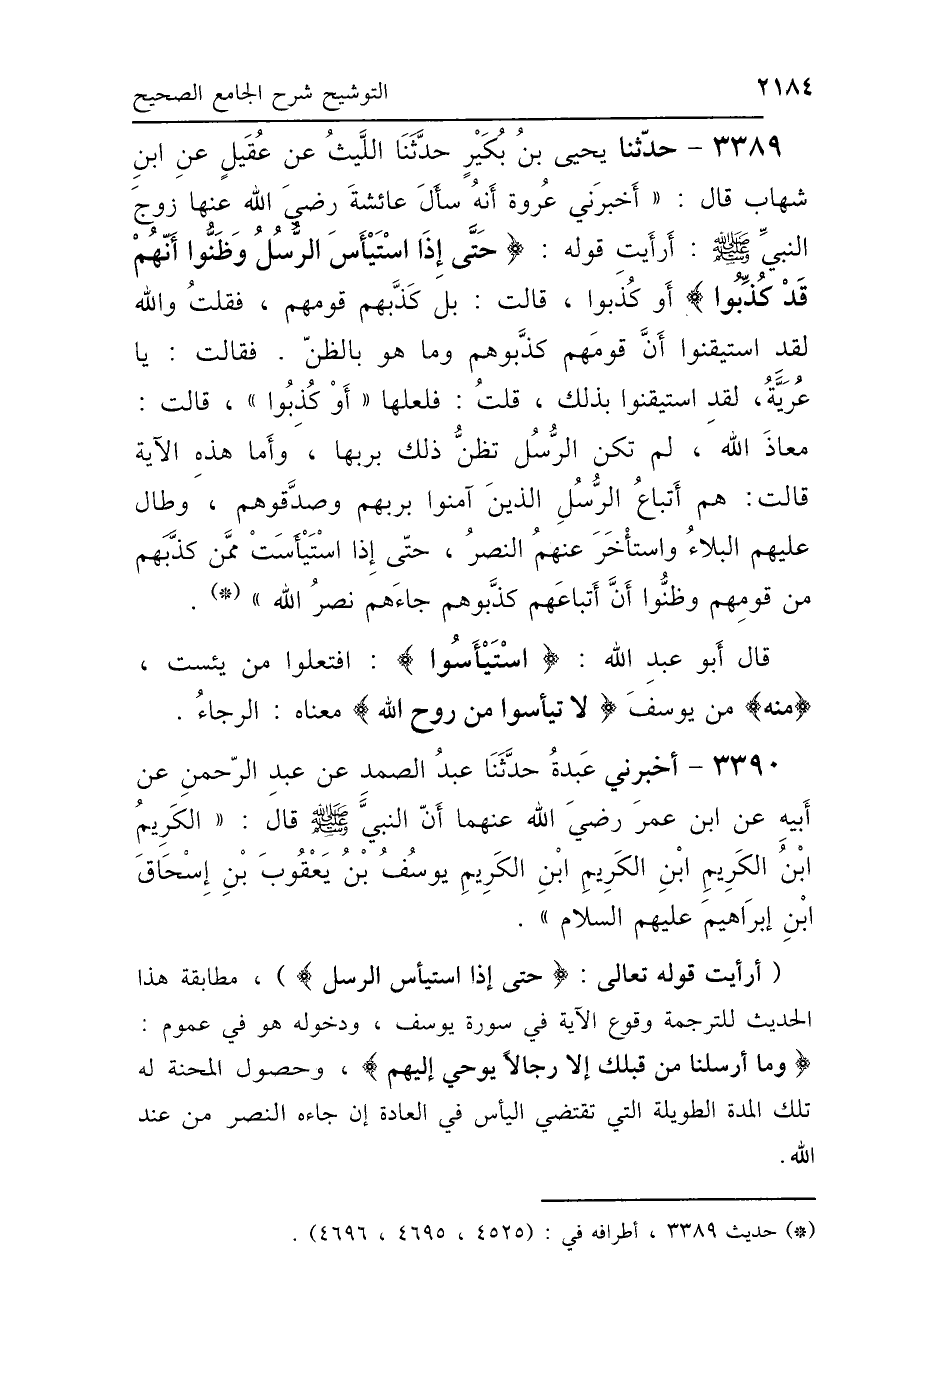 ٢١٨٤ التوشيح شرح الجامع الصحيح
٣٣٨٩ - حدّثنا يحيى بنُ بُكَيْرٍ حدَّثَنَا اللَّيثُ عن عُقَيلٍ عنِ ابنِ
شهابٍ قال : « أخبرَني عُروة أنهُ سألَ عائشةَ رضيَ الله عنها زوجَ
النبيِّ ﷺ : أرأيتِ قوله : ﴿ حَتَّى إِذَا اسْتَيْأَسَ الرُّسُلُ وَظَنُّوا أَنَّهُمْ
قَدْ كُذِّبُوا ﴾ أو كُذَبوا ، قالت : بل كَذَّبهم قومهم ، فقلتُ والله
لقد استيقنوا أنَّ قومَهم كذَّبوهم وما هو بالظنّ . فقالت : يا
عُرَيَّةُ، لقدِ استيقنوا بذلك ، قلتُ : فلعلها « أوْ كُذِبُوا » ، قالت :
معاذَ الله ، لم تكنِ الرُّسُل تظنُّ ذلك بربها ، وأما هذهِ الآية
قالت: هم أَتباعُ الرُّسُلِ الذينَ آمنوا بربهم وصدَّقوهم ، وطال
عليهم البلاءُ واستأْخَرَ عنهمُ النصرُ ، حتّى إذا اسْتَيْأَسَتْ ممَّن كذَّبَهم
من قومِهم وظنُّوا أنَّ أتباعَهم كذَّبوهم جاءَهم نصرُ الله » (*) .
قال أبو عبدِ الله : ﴿ اسْتَيْأَسُوا ﴾ : افتعلوا من يئست ،
﴿منه﴾ من يوسفَ ﴿ لا تيأسوا من روح الله ﴾ معناه : الرجاءُ .
٣٣٩٠ - أخبرني عَبدةُ حدَّثَنَا عبدُ الصمدِ عن عبدِ الرّحمنِ عن
أبيهِ عن ابن عمرَ رضيَ الله عنهما أنّ النبيَّ ﷺ قال : « الكَرِيمُ
ابْنُ الكَرِيمِ ابْنِ الكَرِيمِ ابْنِ الكَرِيمِ يوسُفُ بْنُ يَعْقُوبَ بْنِ إِسْحَاقَ
ابْنِ إبرَاهيمَ عليهم السلام » .
( أرأيت قوله تعالى : ﴿ حتى إذا استيأس الرسل ﴾ ) ، مطابقة هذا
الحديث للترجمة وقوع الآية في سورة يوسف ، ودخوله هو في عموم :
﴿ وما أرسلنا من قبلك إلا رجالاً يوحي إليهم ﴾ ، وحصول المحنة له
تلك المدة الطويلة التي تقتضي اليأس في العادة إن جاءه النصر من عند
الله .
(*) حديث ٣٣٨٩ ، أطرافه في : (٤٥٢٥ ، ٤٦٩٥ ، ٤٦٩٦) .